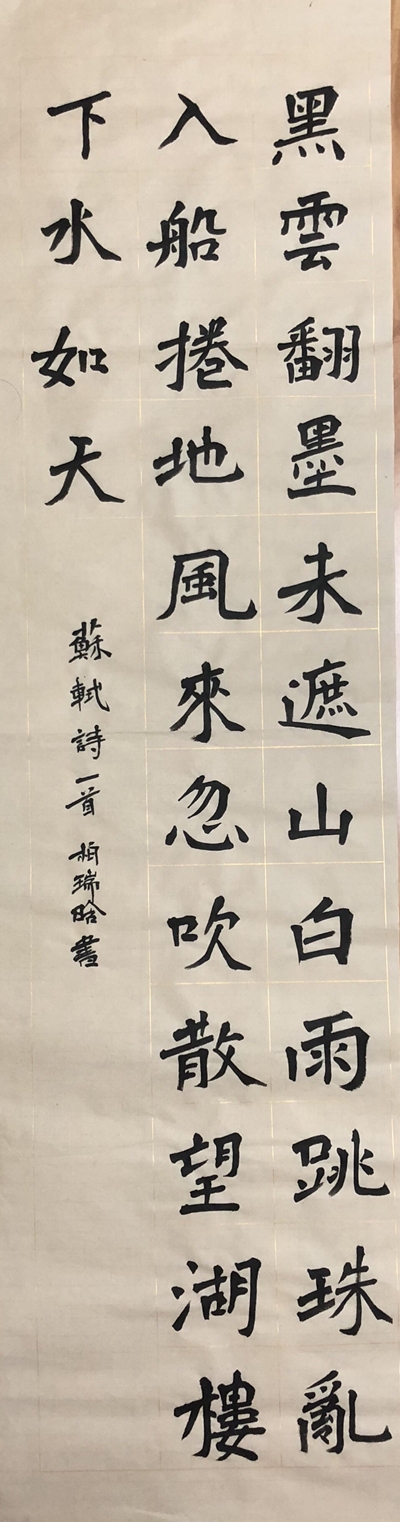 黑雲翻墨未遮山白雨跳珠亂
入船捲地風來忽吹散望湖樓
下水如天
蘇軾詩一首 柏瑞晗書